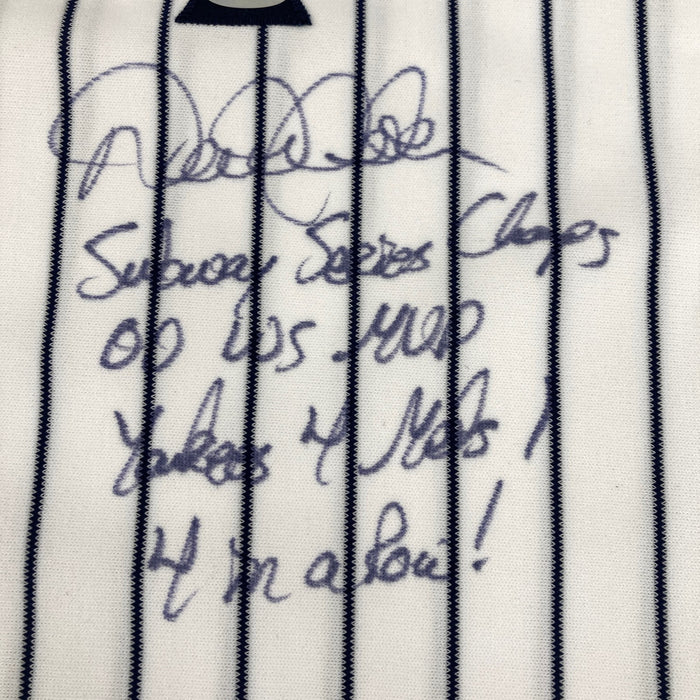 Derek Jeter
Subway Series Champs
00 WS MVP
Yankees 4 Mets 1
4 in a Row!